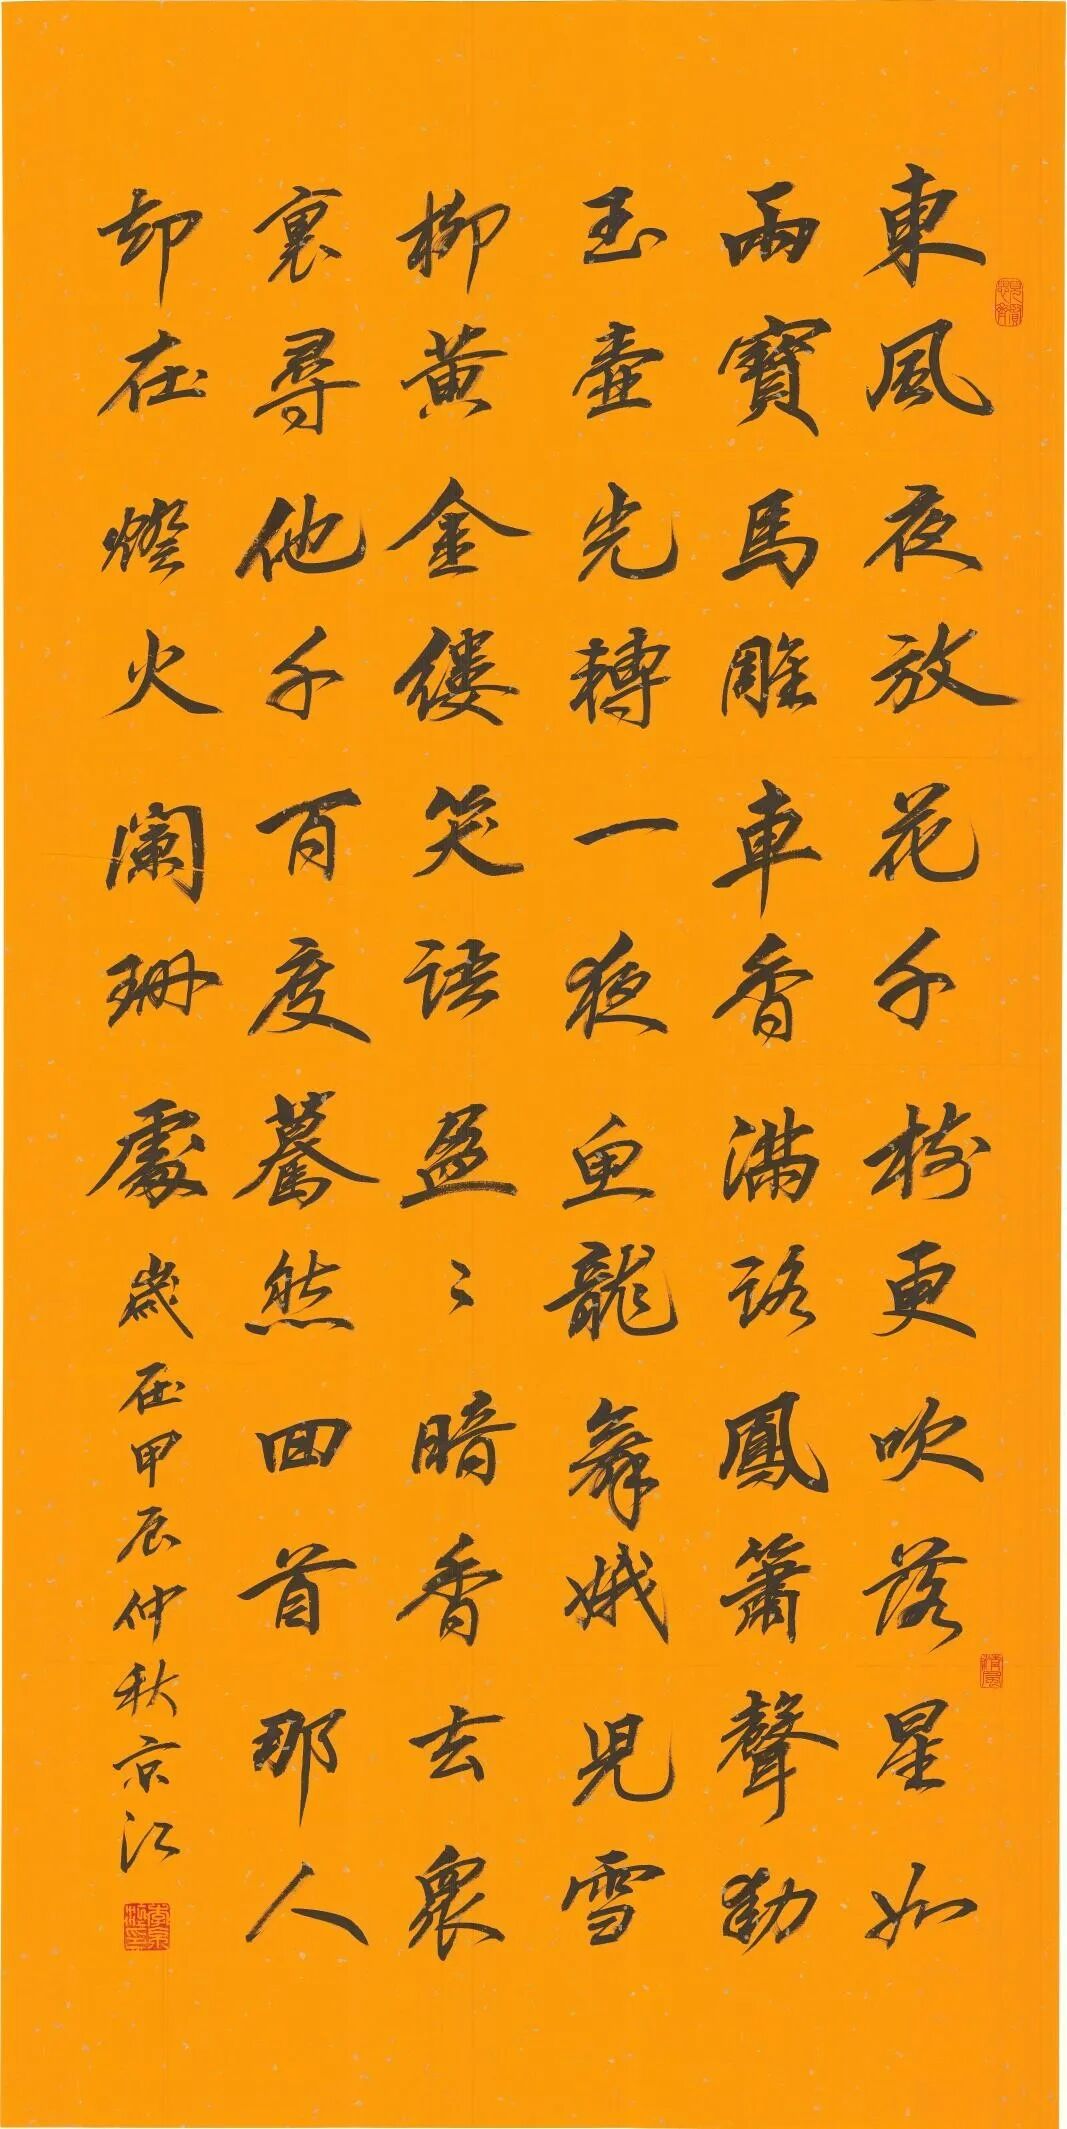 東風夜放花千樹更吹落星如
雨寶馬雕車香滿路鳳簫聲動
玉壺光轉一夜魚龍舞娥兒雪
柳黄金縷笑語盈〻暗香去衆
裏尋他千百度驀然回首那人
却在燈火闌珊處歲在甲辰仲秋京江